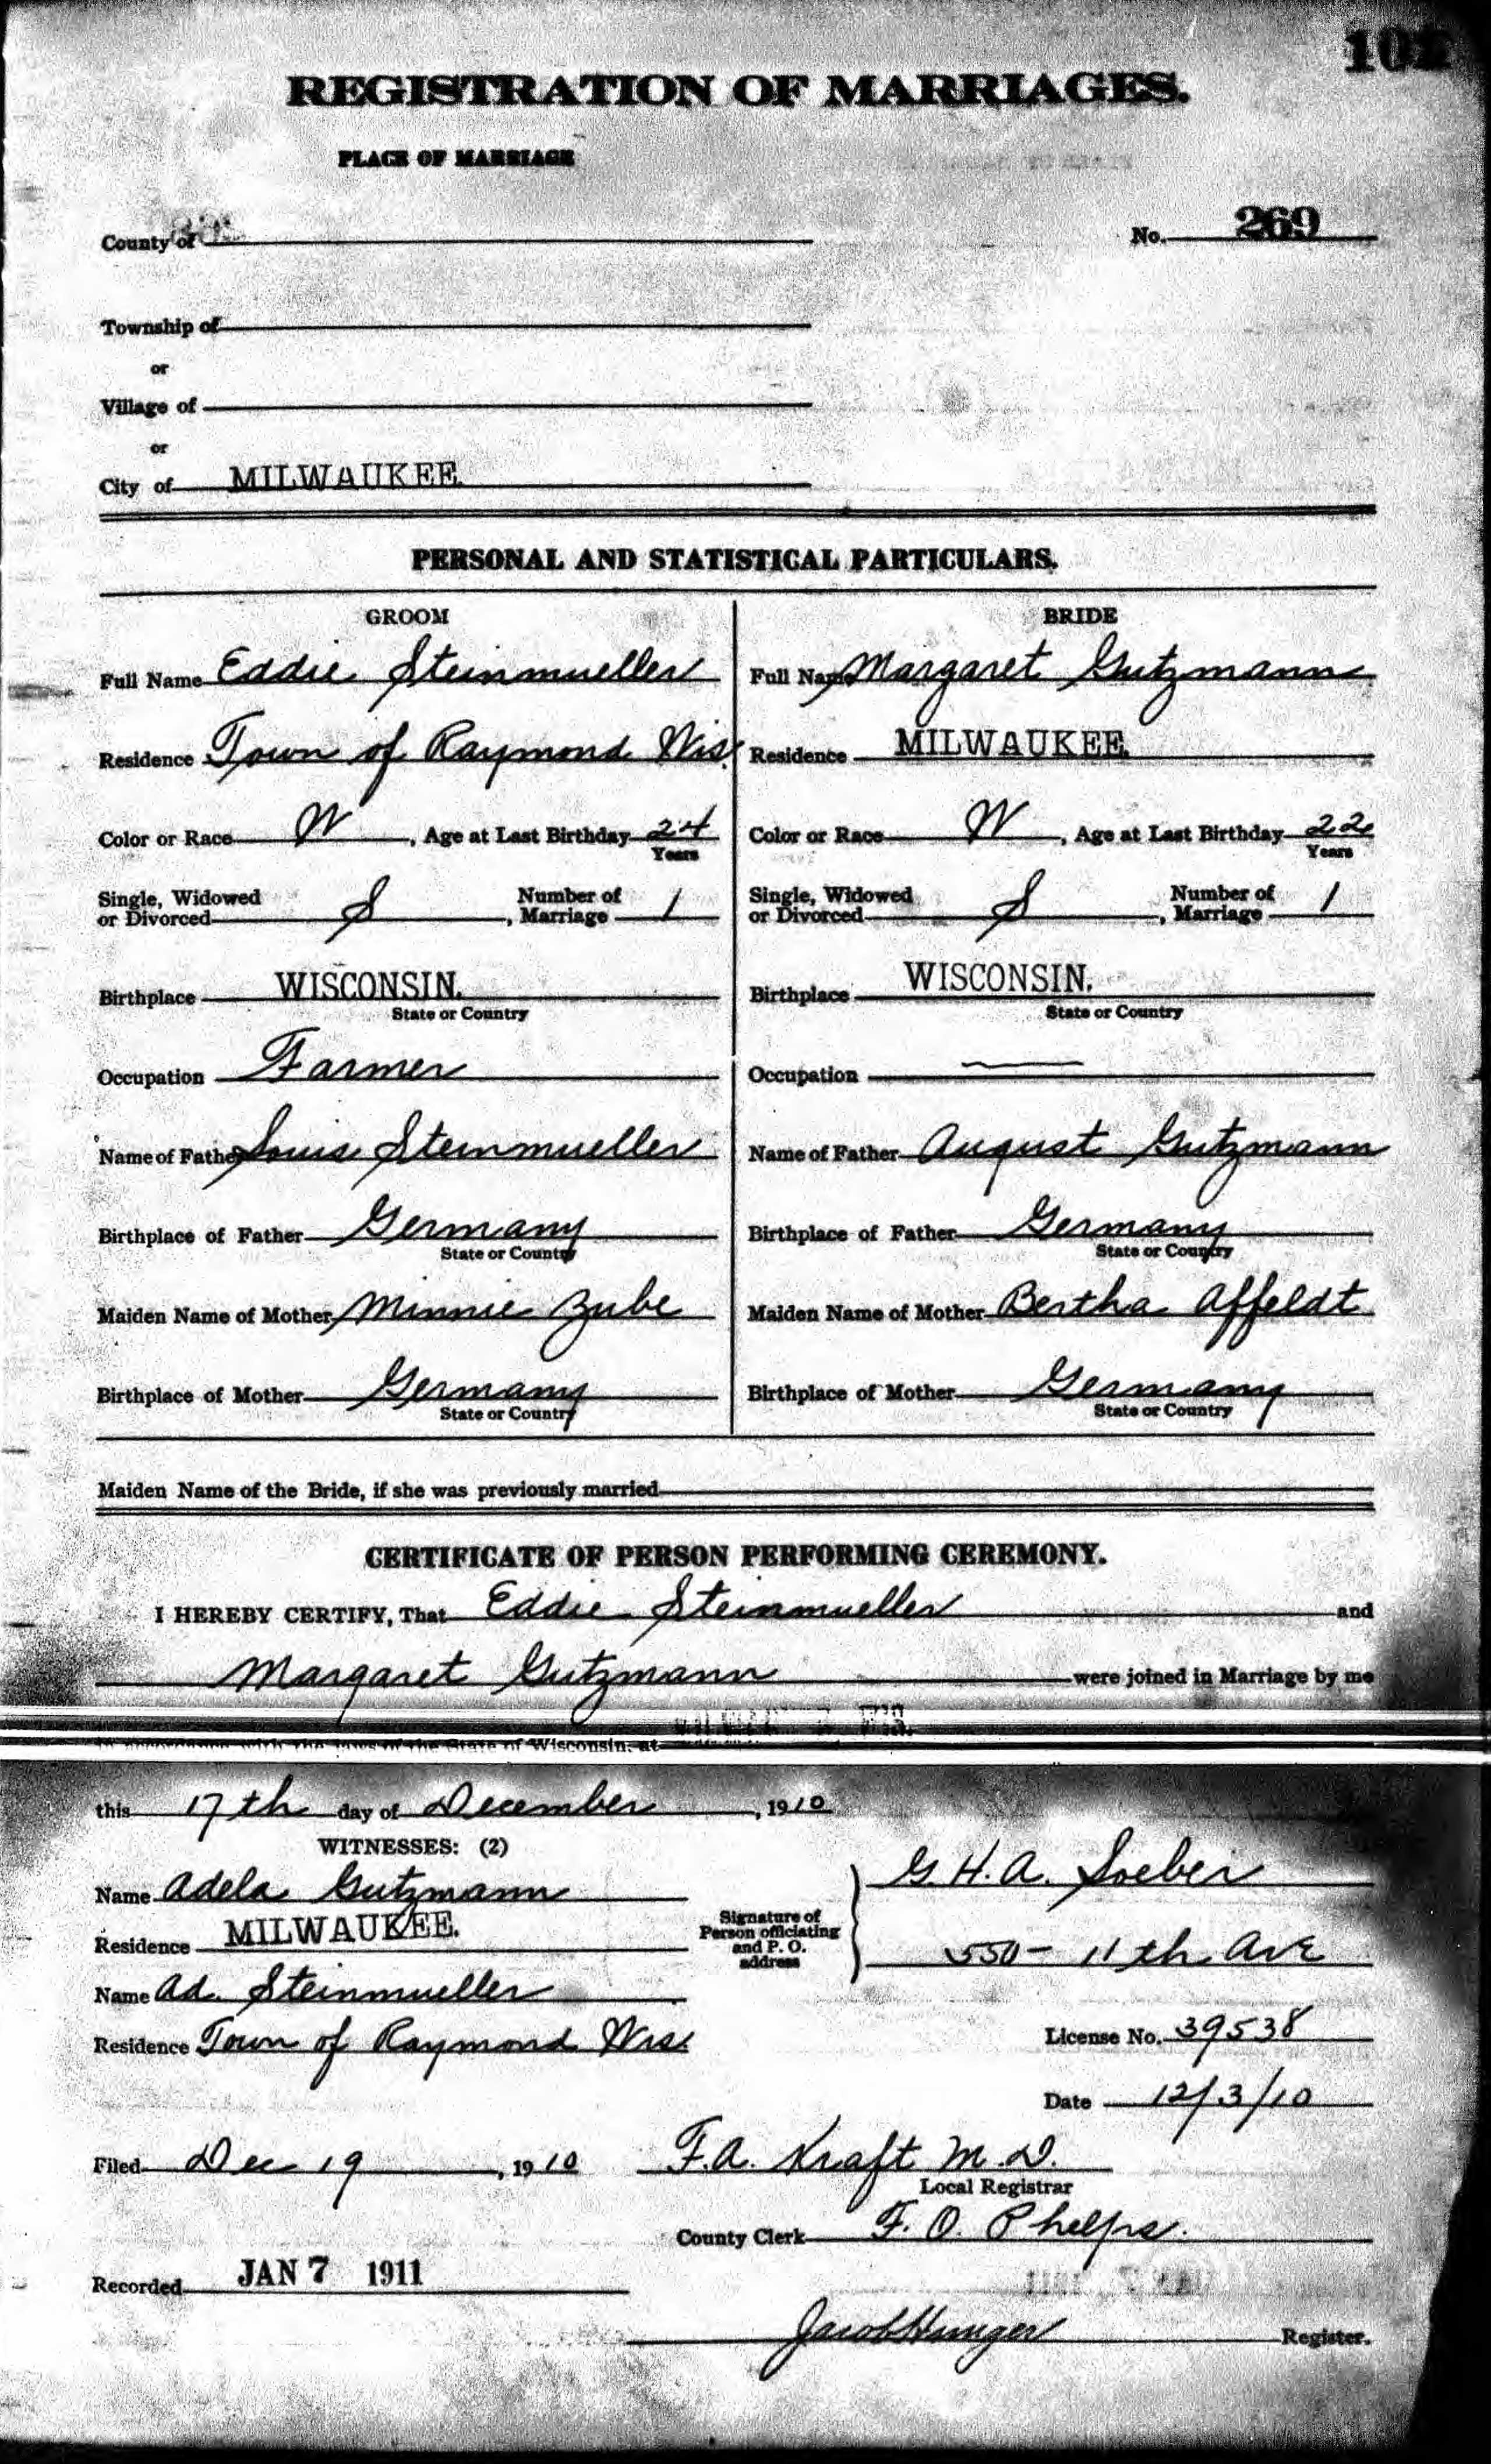 REGISTRATION OF MARRIAGES.
PLACE OF MARRIAGE
County of
No. 269
Township of
or
Village of
or
City of MILWAUKEE.
PERSONAL AND STATISTICAL PARTICULARS.
GROOM
Full Name Eddie Steinmueller
Residence Town of Raymond Wis.
Color or Race W, Age at Last Birthday 24
Years
Single, Widowed or Divorced S, Number of Marriage 1
Birthplace WISCONSIN.
State or Country
Occupation Farmer
Name of Father Louis Steinmueller
Birthplace of Father Germany
State or Country
Maiden Name of Mother Minnie Zube
Birthplace of Mother Germany
State or Country
BRIDE
Full Name Margaret Gutzmann
Residence MILWAUKEE.
Color or Race W, Age at Last Birthday 22
Years
Single, Widowed or Divorced S, Number of Marriage 1
Birthplace WISCONSIN.
State or Country
Occupation —
Name of Father August Gutzmann
Birthplace of Father Germany
State or Country
Maiden Name of Mother Bertha Affeldt
Birthplace of Mother Germany
State or Country
Maiden Name of the Bride, if she was previously married
CERTIFICATE OF PERSON PERFORMING CEREMONY.
I HEREBY CERTIFY, That Eddie Steinmueller and
Margaret Gutzmann were joined in Marriage by me
in accordance with the laws of the State of Wisconsin, at
this 17th day of December, 1910
WITNESSES: (2)
Name Adela Gutzmann
Residence MILWAUKEE.
Name Ad. Steinmueller
Residence Town of Raymond Wis.
Signature of Person officiating and P. O. address
G. H. A. Loeber
550 - 11th Ave
License No. 39538
Date 12/3/10
Filed Dec 19, 1910
F.A. Kraft M.D.
Local Registrar
County Clerk F. O. Phelps.
Recorded JAN 7 1911
Jacob Hunger Register.